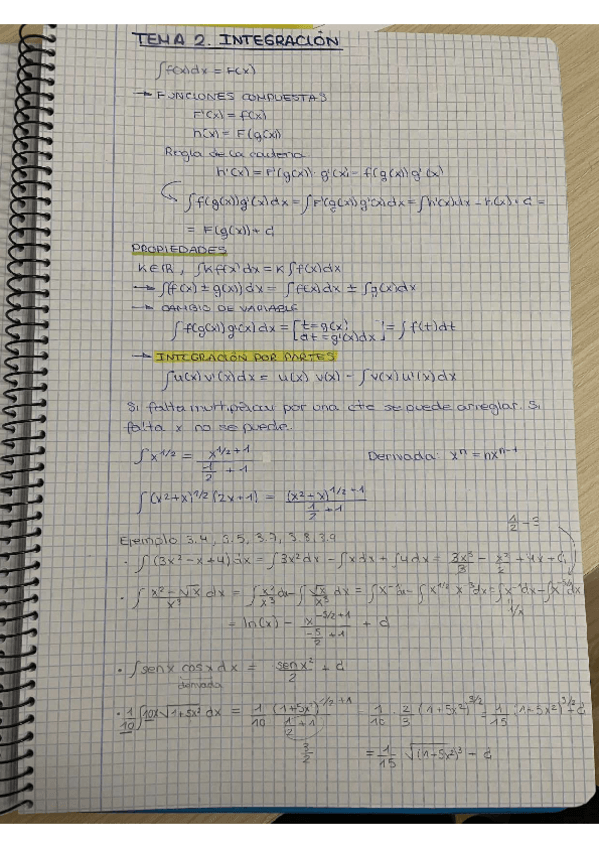 TEMA 2. INTEGRACIÓN
∫f(x)dx = F(x)
→ FUNCIONES COMPUESTAS
F'(x) = f(x)
h(x) = F(g(x))
Regla de la cadena
h'(x) = F'(g(x))·g'(x) = f(g(x))g'(x)
∫f(g(x))g'(x)dx = ∫F'(g(x))g'(x)dx = ∫h'(x)dx = h(x)+d =
= F(g(x))+d
PROPIEDADES
K∈ℝ, ∫Kf(x)dx = K∫f(x)dx
→ ∫(f(x) ± g(x))dx = ∫f(x)dx ± ∫g(x)dx
→ CAMBIO DE VARIABLE
∫f(g(x))g'(x)dx = [t=g(x) dt=g'(x)dx] = ∫f(t)dt
→ INTEGRACIÓN POR PARTES
∫u(x)v'(x)dx = u(x)v(x) - ∫v(x)u'(x)dx
Si falta multiplicar por una cte se puede arreglar. Si
falta x no se puede.
∫x^1/2 = x^(1/2+1) / (1/2+1) Derivada: x^n = nx^(n-1)
∫(x²+x)^1/2 (2x+1) = (x²+x)^(1/2+1) / (1/2+1)
1/2 - 3
Ejemplo 3.4, 3.5, 3.7, 3.8, 3.9
· ∫(3x²-x+4)dx = ∫3x²dx - ∫xdx + ∫4dx = 3x³/3 - x²/2 + 4x + d
· ∫(x²-√x)/x³ dx = ∫x²/x³ dx - ∫√x/x³ dx = ∫x⁻¹dx - ∫x^1/2 x⁻³dx = ∫x⁻¹dx - ∫x^-5/2 dx
1/x
= ln(x) - x^(-5/2+1) / (-5/2+1) + d
· ∫senx cosx dx = senx²/2 + d
derivada
· 1/10 ∫10x√1+5x² dx = 1/10 (1+5x²)^(1/2+1) / (1/2+1) = 1/10 · 2/3 (1+5x²)^3/2 = 1/15 (1+5x²)^3/2 + d
3/2
= 1/15 √(1+5x²)³ + d